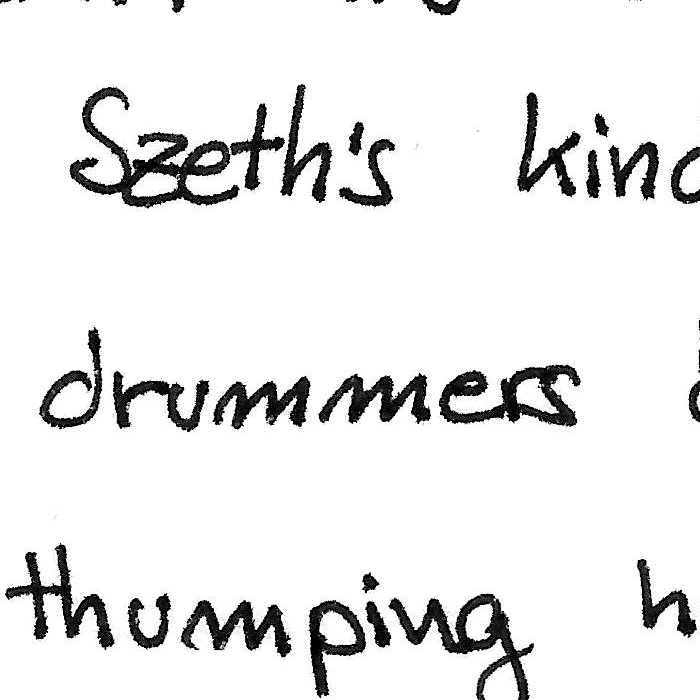 Szeth's
drummers
thumping